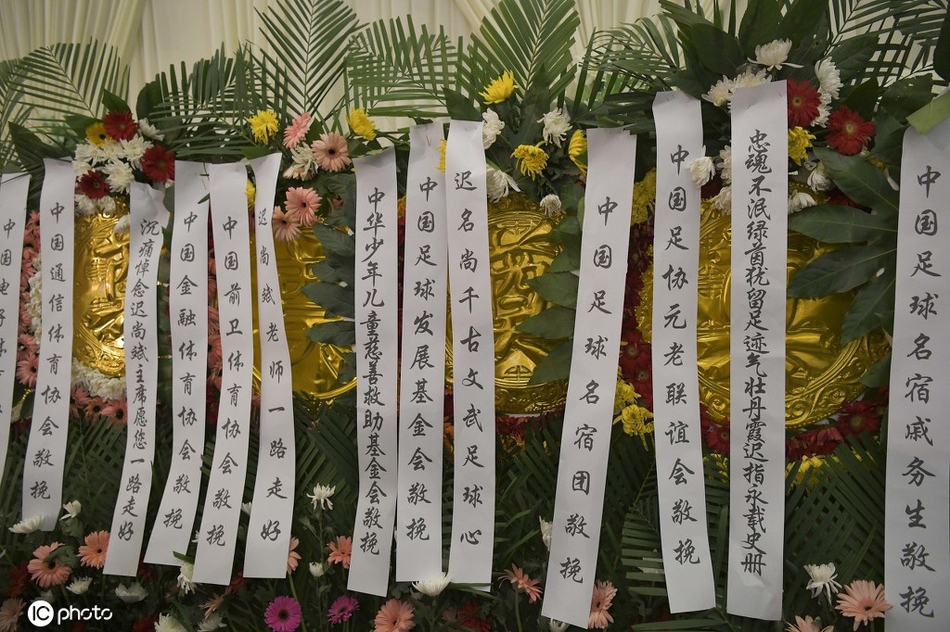 中国电子体
中国通信体育协会敬挽
沉痛悼念迟尚斌主席愿您一路走好
中国金融体育协会敬挽
中国前卫体育协会敬挽
迟尚斌老师一路走好
中华少年儿童慈善救助基金会敬挽
中国足球发展基金会敬挽
迟名尚千古文武足球心
中国足球名宿团敬挽
中国足协元老联谊会敬挽
忠魂不泯绿茵犹留足迹气壮丹霞迟指永载史册
中国足球名宿戚务生敬挽
IC photo